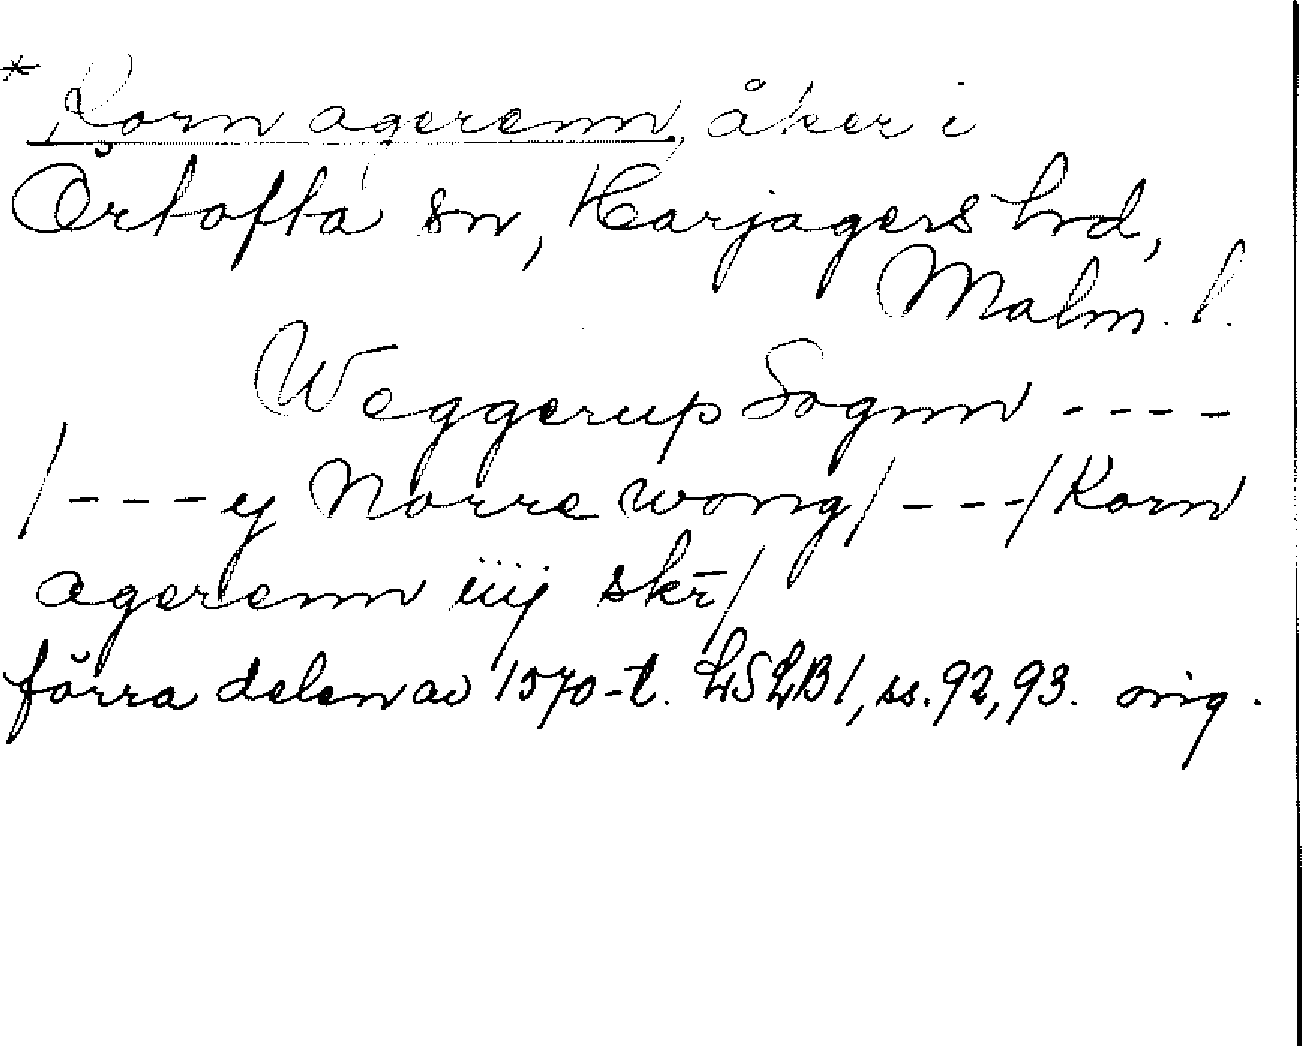 * Korn agerenn, åker i
Örtofta sn, Harjagers hrd,
Malm. l.
Weggerup Sognn ----
/---y Norre wong/---/Korn
agerenn iiij skr̄/
förra delen av 1570-t. LSLB1, ss. 92, 93. orig.